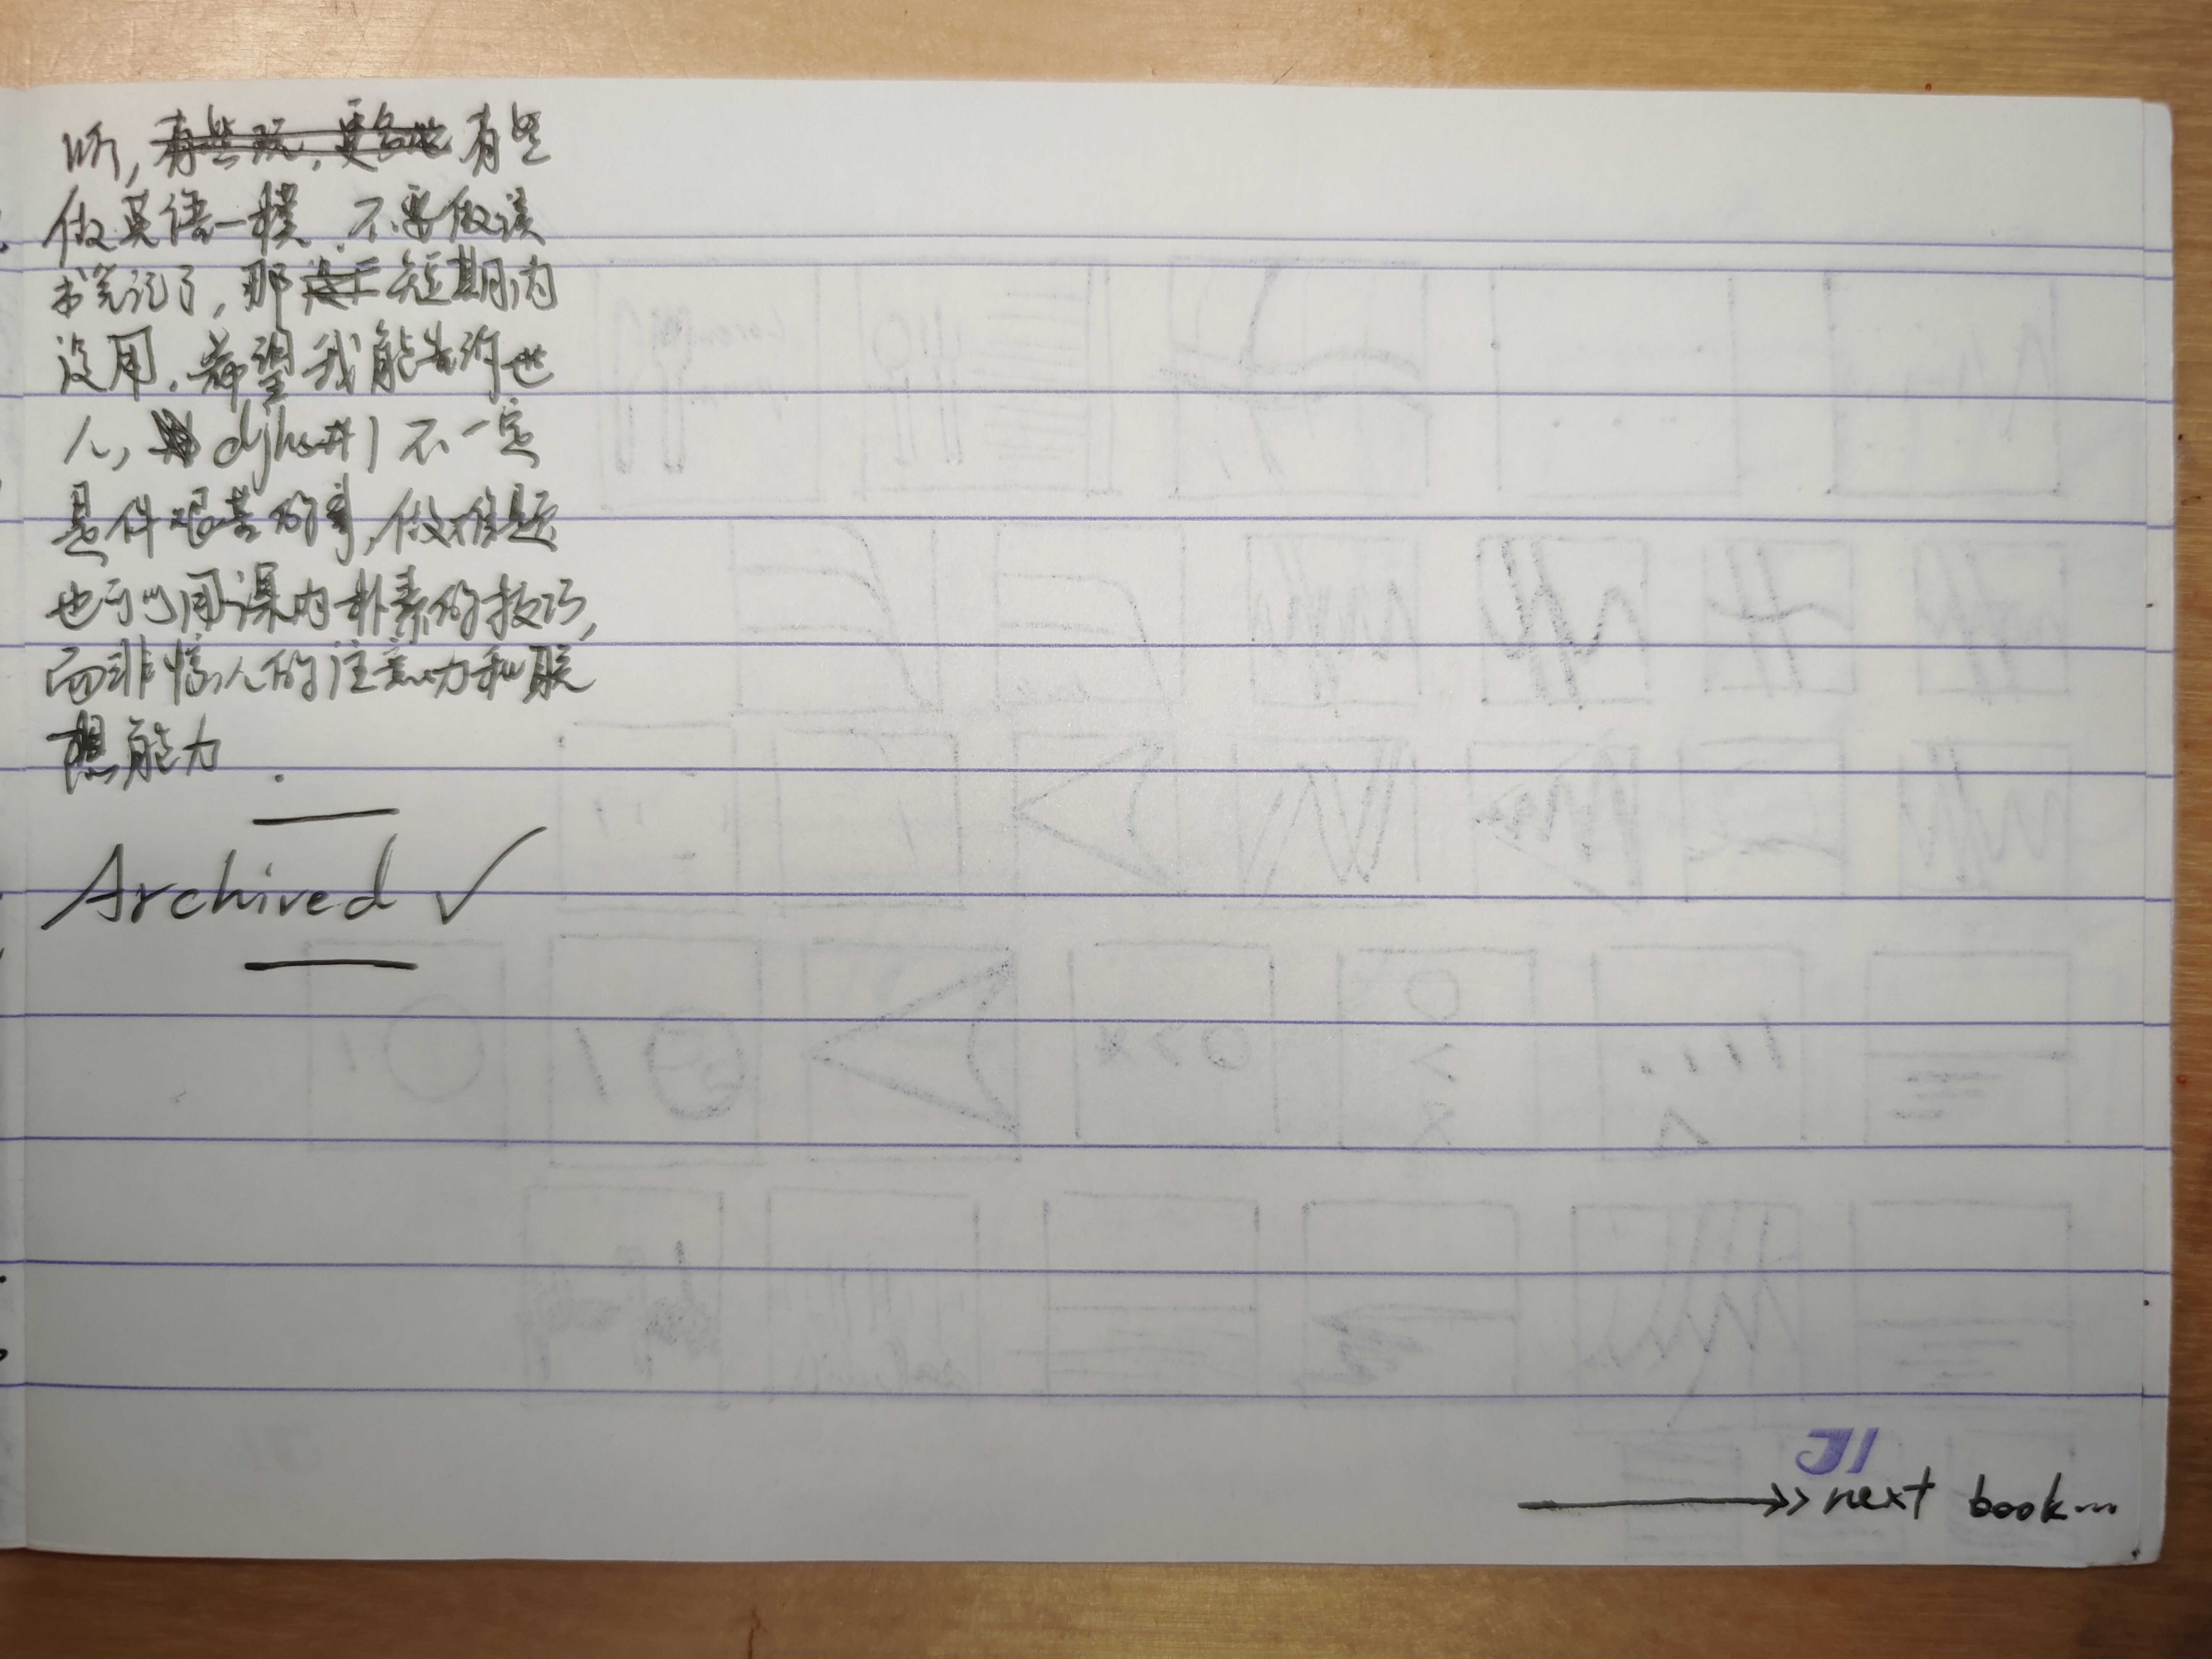 听, 有些
做英语一模, 不要做读
书笔记了, 那短期内
没用, 希望我能告诉世
人, 不一定
是件艰苦的事, 做难题
也可以用课内朴素的技巧,
而非惊人的注意力和联
想能力.
Archived ✓
31
next book...